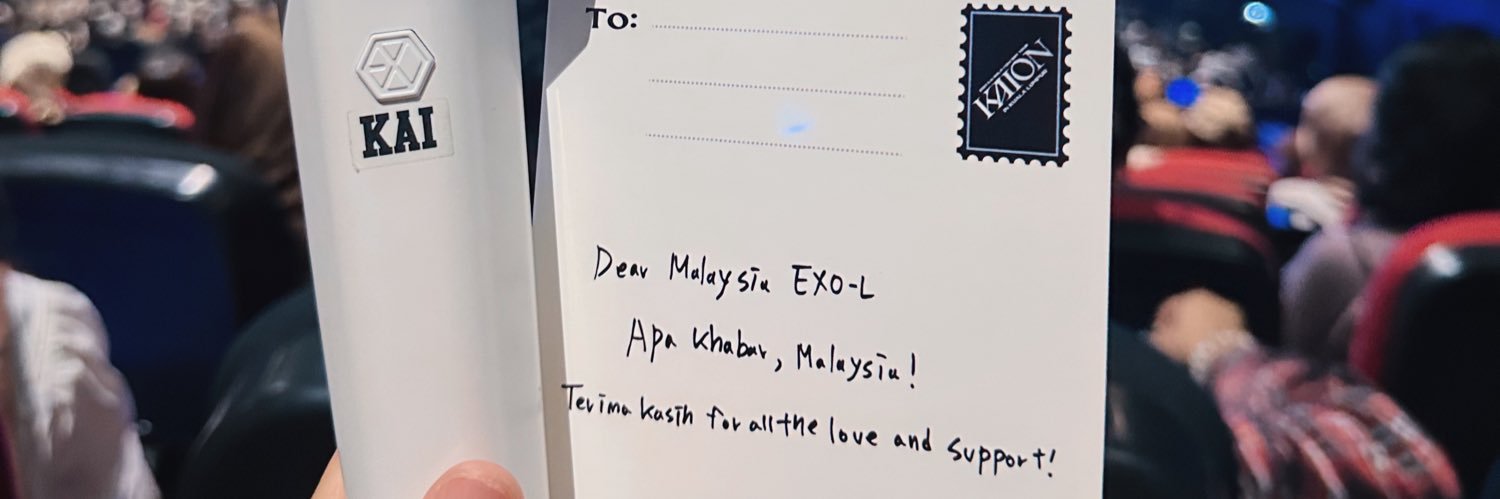 KAI
TO:
KAION
IN KUALA LUMPUR
Dear Malaysia EXO-L
Apa khabar, Malaysia!
Terima kasih for all the love and support!